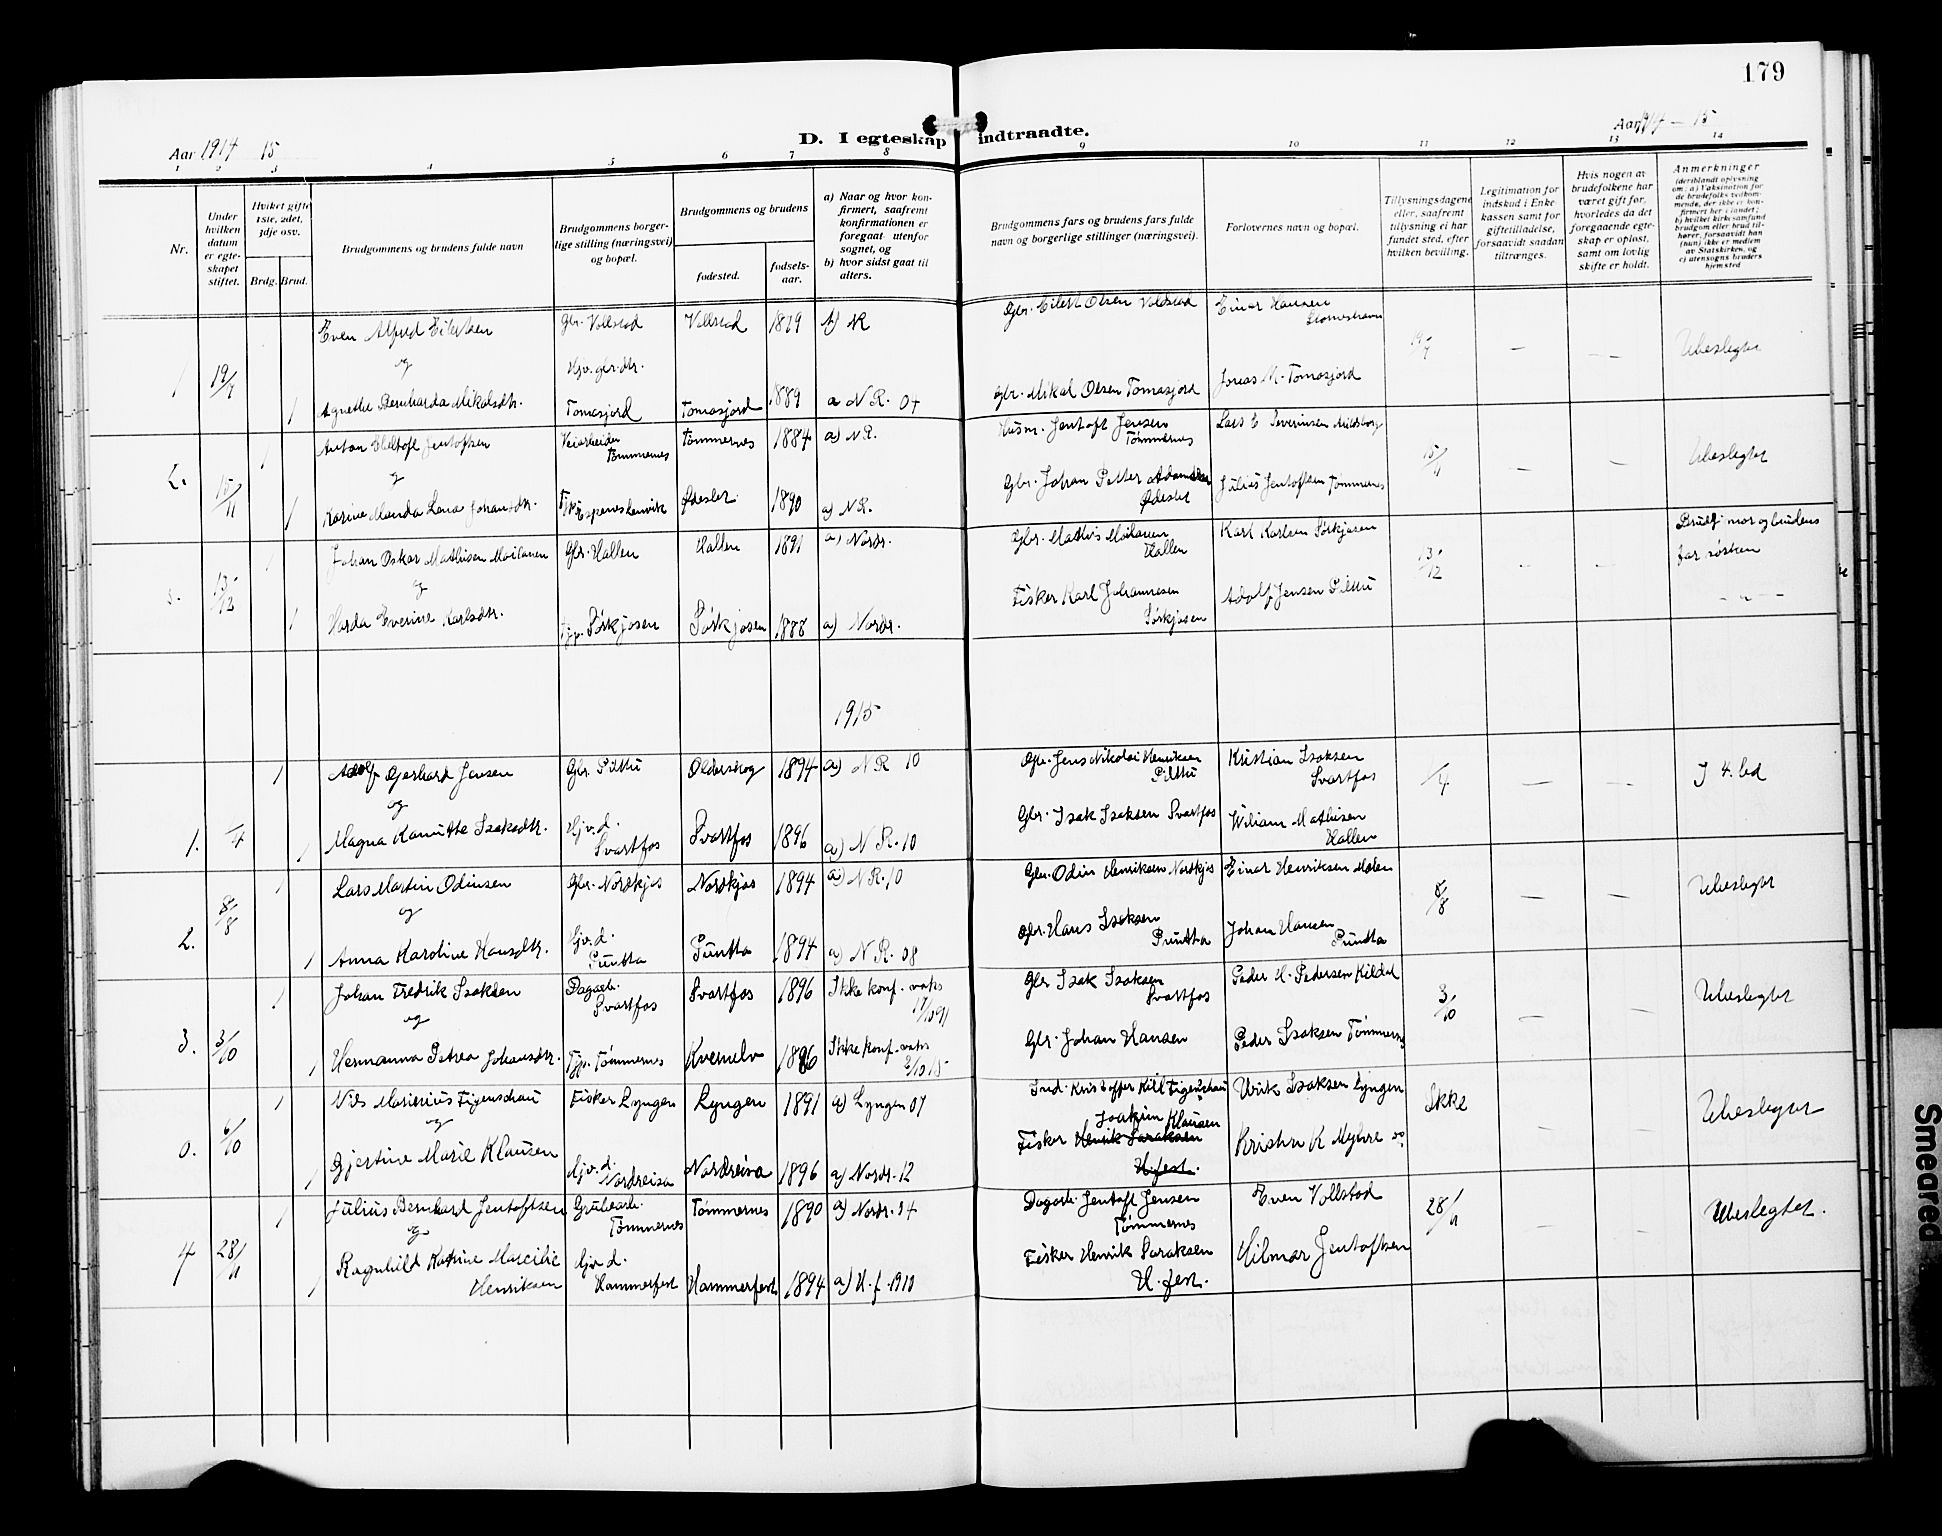 179
D. I egteskap indtraadte.
Aar 1914 15
Aar 1914 — 15
1 2 3 4 5 6 7 8 9 10 11 12 13 14
Nr.
Under hvilken datum er egteskapet stiftet.
Hvilket gifte 1ste, 2det, 3dje osv.
Brdg. Brud.
Brudgommens og brudens fulde navn
Brudgommens borgerlige stilling (næringsvei) og bopæl.
Brudgommens og brudens
fødested.
fødselsaar.
a) Naar og hvor konfirmert, saafremt konfirmationen er foregaat utenfor sognet, og
b) hvor sidst gaat til alters.
Brudgommens fars og brudens fars fulde navn og borgerlige stillinger (næringsvei).
Forlovernes navn og bopæl.
Tillysningsdagene eller, saafremt tillysning ei har fundet sted, efter hvilken bevilling.
Legitimation for indskud i Enkekassen samt for giftetilladelse, forsaavidt saadan tiltrænges.
Hvis nogen av brudefolkene har været gift før, hvorledes da det foregaaende egteskap er opløst, samt om lovlig skifte er holdt.
Anmerkninger
1 19/7 Even Alfred Eilertsen Gbr. Vollstad Vollstad 1879 b) NR Gbr. Eilert Olsen Vollstad Einar Hansen
og Hjv. gbr. dtr. 19/7 — — Ubeslegtet
1 Agnethe Bernharda Mikalsdtr. Tomasjord Tomasjord 1889 a N R. 04 Gbr. Mikal Olsen Tomasjord Jonas M. Tomasjord
2. 15/11 1 Anton Jentoftsen Veiarbeider Tømmernes Tømmernes 1884 a) N R. Husm. Jentoft Jensen Tømmernes Lars E Severinsen
og 15/11 — — Ubeslegtet
1 Karine Manda Lena Johansdtr. 1890 a) N R. Gbr. Johan Petter Julius Jentoftsen Tømmernes
3. 13/12 1 Johan Oskar Mathisen Moilanen Gbr. Hallen Hallen 1891 a) Nordr. Gbr. Mathis Moilanen Hallen Karl Karlsen Sørkjosen 13/12 Brudg. mor og brudens
og far søsken
1 Everine Karlsdtr. Tjp. Sørkjosen Sørkjosen 1888 a) Nordr. Fisker Karl Johannesen Sørkjosen Adolf Jensen Pilttu — " —
1915
1. /4 1 Adolf Gerhard Jensen Gbr. Pilttu Olderskog 1894 a) N R 10 Gbr. Jens Nikolai Henriksen Pilttu Kristian Isaksen Svartfos /4 — — I 4. led
og
1 Magna Kanutte Isaksdtr. Hjv. d. Svartfos Svartfos 1896 a) N R. 10 Gbr. Isak Isaksen Svartfos Wiliam Mathisen Hallen
2. 8/8 1 Lars Martin Odinsen Gbr. Nordkjos Nordkjos 1894 a) N R. 10 Gbr. Odin Henriksen Nordkjos Einar Henriksen 8/8 — — Ubeslegtet
og
1 Anna Karoline Hansdtr. Hjv. d. Puntta Puntta 1894 a) N R. 08 Gbr. Hans Isaksen Puntta Johan Hansen Puntta
3. 3/10 1 Johan Fredrik Isaksen Dagarb. Svartfos Svartfos 1896 Ikke konf. Gbr Isak Isaksen Svartfos Peder H. Pedersen Kildal 3/10 — — Ubeslegtet
og
1 Hermanna Petrea Johansdtr. Tjp. Tømmernes Kvenelv 1896 Ikke konf. Gbr. Johan Hansen Peder Isaksen Tømmernes
0. 6/10 1 Nils Marienius Figenschau Fisker Lyngen Lyngen 1891 a) Lyngen 07 Ind. Kristoffer Kill Figenschau Ulrik Isaksen Lyngen Ikke — — Ubeslegtet
og Joakim Klausen
1 Gjertine Marie Klausen Hjv. d. Nordreisa Nordreisa 1896 a) Nordr. 12 Fisker Henrik Saraksen H.fest. Kristin K Myhre
4 28/11 1 Julius Bernhard Jentoftsen Grubearb. Tømmernes Tømmernes 1890 a) Nordr. 04 Dagarb. Jentoft Jensen Tømmernes Even Vollstad 28/11 — — Ubeslegtet.
og
1 Ragnhild Katrine Marcilie Henriksen Hjv. d. Hammerfest Hammerfest 1894 a) H. f. 1910 Fisker Henrik Saraksen H. fest. Hilmar Jentoftsen
Smeared